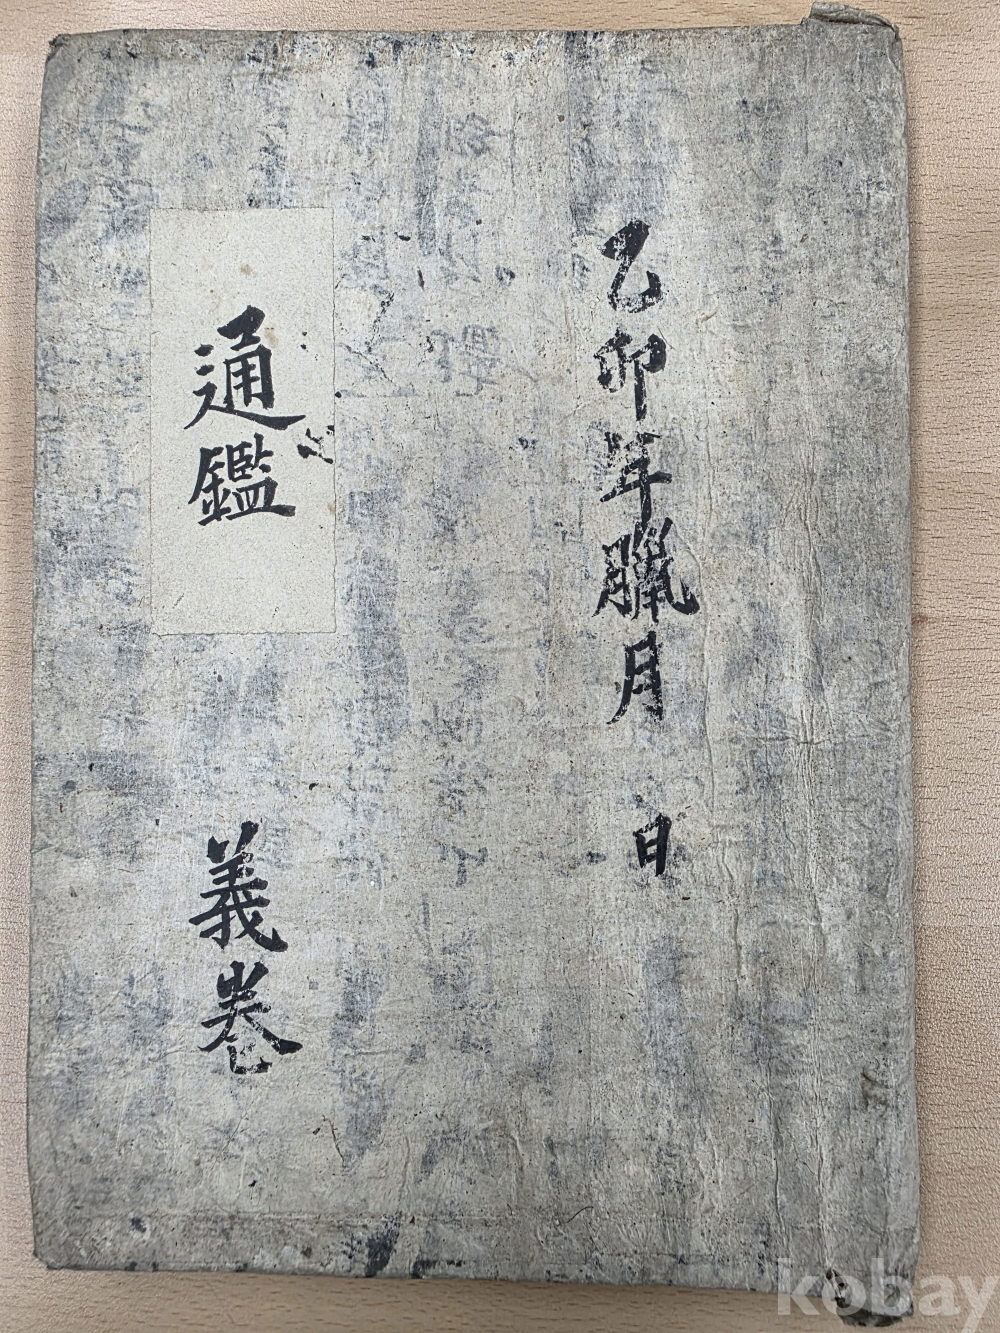 乙卯年臘月 日
通鑑
義卷
kobay